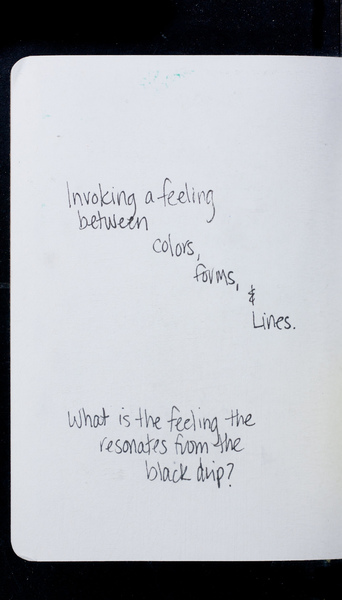 Invoking a feeling
between
colors,
forms,
&
Lines.
What is the feeling the
resonates from the
black drip?